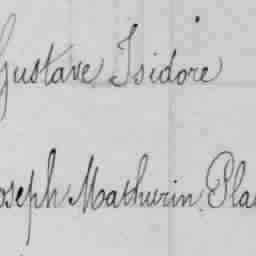 Gustave Isidore
Joseph Mathurin Pla